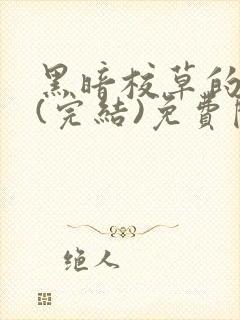 黑暗校草的
(完結)免費
绝人